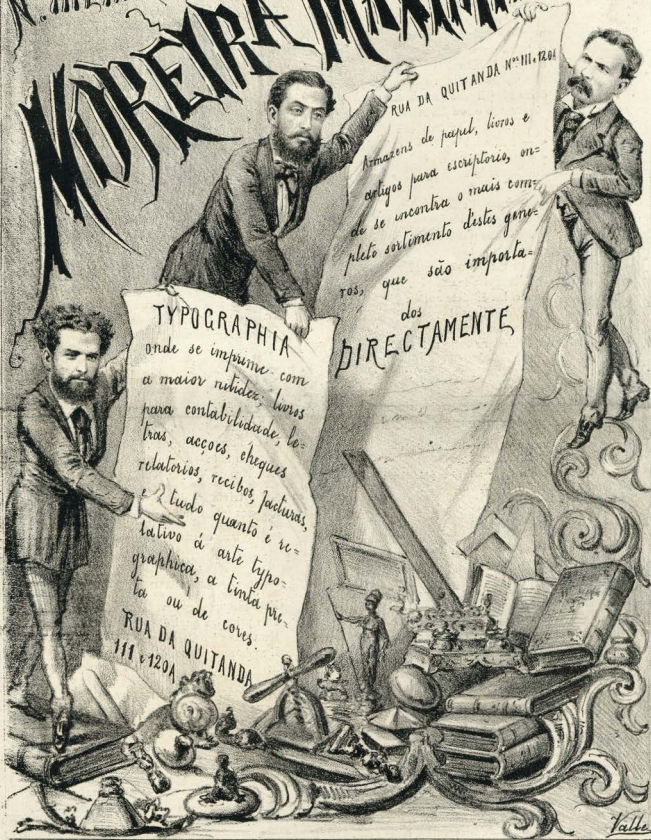 MOREIRA MAXIMI
RUA DA QUITANDA Nos 111 e 120A
Armazens de papel, livros e
artigos para escriptorio, on-
de se incontra o mais com-
pleto sortimento d'estes gene-
ros, que são importa-
dos
DIRECTAMENTE
TYPOGRAPHIA
onde se imprime com
a maior nitidez: livros
para contabilidade, le-
tras, acções, cheques
relatorios, recibos, facturas,
e tudo quanto é re-
lativo á arte typo-
graphica, a tinta pre-
ta ou de cores.
RUA DA QUITANDA
111 e 120A
Valle